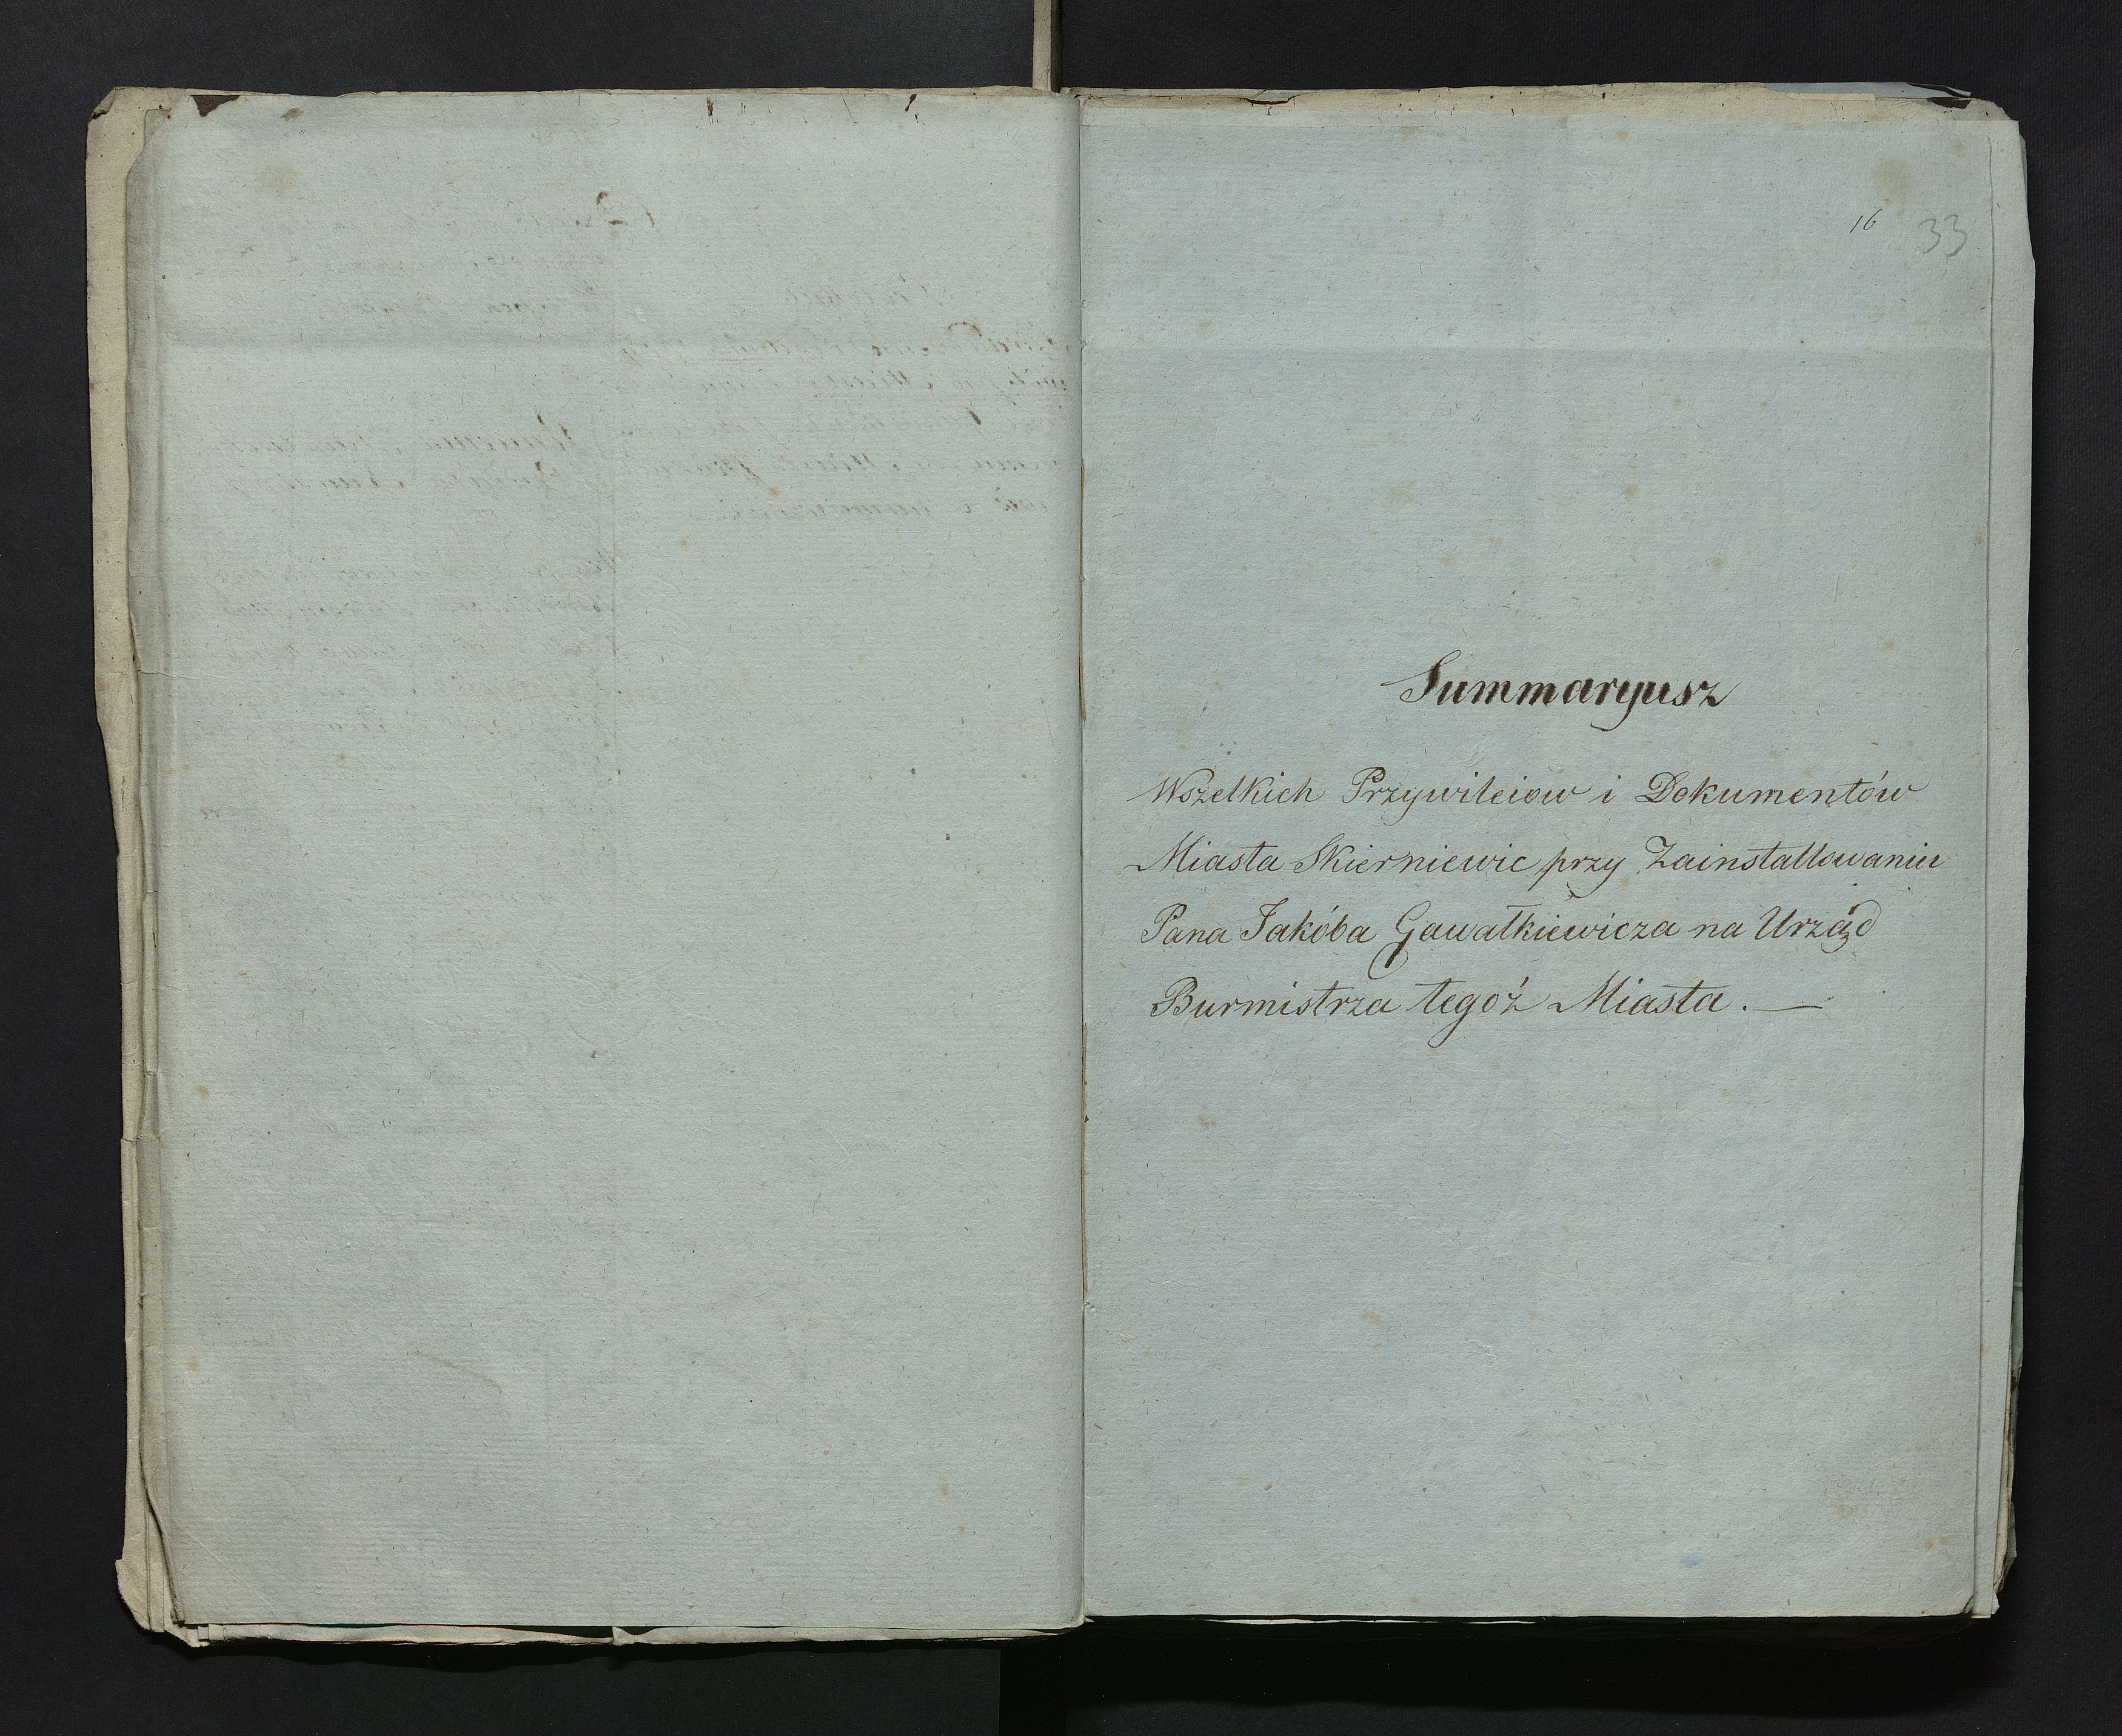 16 33
Summaryusz
Wszelkich Przywileiow i Dokumentów
Miasta Skierniewic przy Zainstallowaniu
Pana Jakóba Gawałkiewicza na Urząd
Burmistrza tegoż Miasta. —